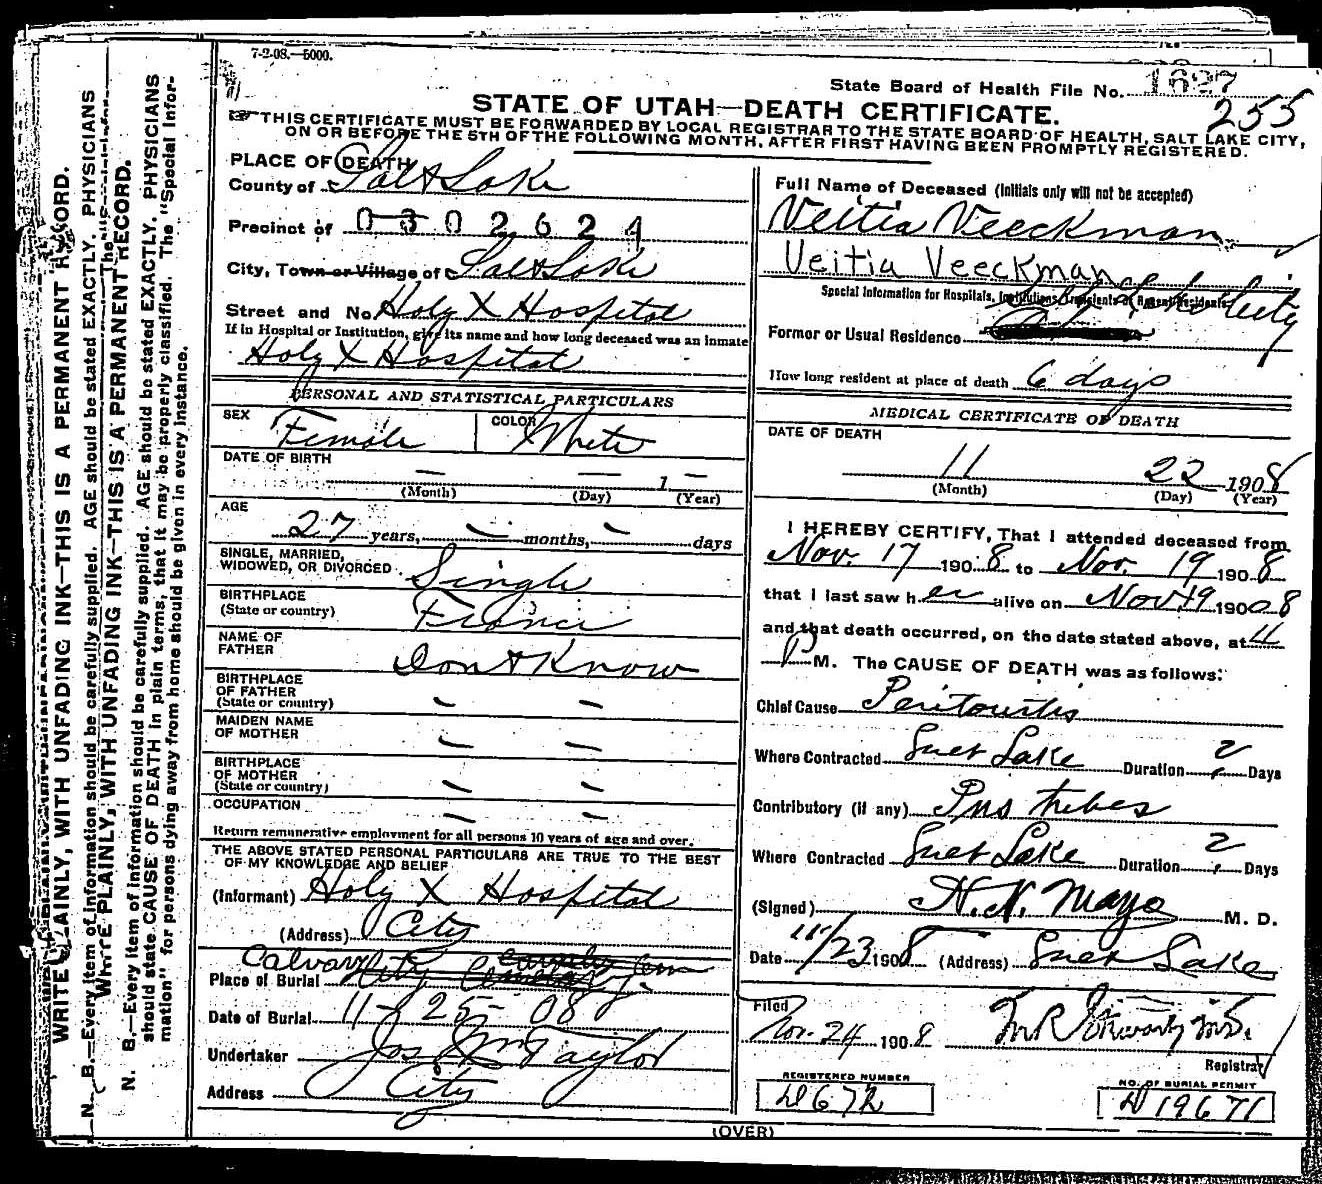 7-2-08.—5000.
State Board of Health File No. 1627
255
STATE OF UTAH—DEATH CERTIFICATE.
THIS CERTIFICATE MUST BE FORWARDED BY LOCAL REGISTRAR TO THE STATE BOARD OF HEALTH, SALT LAKE CITY,
ON OR BEFORE THE 5TH OF THE FOLLOWING MONTH, AFTER FIRST HAVING BEEN PROMPTLY REGISTERED.
PLACE OF DEATH
County of Salt Lake
Precinct of 0302624
City, Town or Village of Salt Lake
Street and No. Holy X Hospital
If in Hospital or Institution, give its name and how long deceased was an inmate
Holy X Hospital
PERSONAL AND STATISTICAL PARTICULARS
SEX Female COLOR White
DATE OF BIRTH
— — 1 —
(Month) (Day) (Year)
AGE
27 years, — months, — days
SINGLE, MARRIED,
WIDOWED, OR DIVORCED Single
BIRTHPLACE
(State or country) France
NAME OF
FATHER Dont Know
BIRTHPLACE
OF FATHER
(State or country) — —
MAIDEN NAME
OF MOTHER — —
BIRTHPLACE
OF MOTHER
(State or country) — —
OCCUPATION — —
Return remunerative employment for all persons 10 years of age and over.
THE ABOVE STATED PERSONAL PARTICULARS ARE TRUE TO THE BEST
OF MY KNOWLEDGE AND BELIEF
(Informant) Holy X Hospital
(Address) City
Calvary
Place of Burial City Cemetery
Date of Burial 11-25-08
Undertaker Jos Wm Taylor
Address City
Full Name of Deceased (Initials only will not be accepted)
Veitia Veeckman
Veitia Veeckman
Special Information for Hospitals, Institutions, Transients or Recent Residents.
Salt Lake City
Former or Usual Residence
How long resident at place of death 6 days
MEDICAL CERTIFICATE OF DEATH
DATE OF DEATH
11 22 1908
(Month) (Day) (Year)
I HEREBY CERTIFY, That I attended deceased from
Nov. 17 1908 to Nov. 19 1908
that I last saw her alive on Nov 19 1908
and that death occurred, on the date stated above, at 11
P M. The CAUSE OF DEATH was as follows:
Chief Cause Peritonitis
Where Contracted Salt Lake Duration ? Days
Contributory (if any) Pus tubes
Where Contracted Salt Lake Duration ? Days
(Signed) H. N. Mayo M. D.
Date 11/23 1908 (Address) Salt Lake
Filed
Nov. 24 1908
Registrar
REGISTERED NUMBER
D672
NO. OF BURIAL PERMIT
D19671
(OVER)
WRITE PLAINLY, WITH UNFADING INK—THIS IS A PERMANENT RECORD.
N. B.—Every item of information should be carefully supplied. AGE should be stated EXACTLY. PHYSICIANS
WRITE PLAINLY, WITH UNFADING INK—THIS IS A PERMANENT RECORD.
N. B.—Every item of information should be carefully supplied. AGE should be stated EXACTLY. PHYSICIANS
should state CAUSE OF DEATH in plain terms, that it may be properly classified. The "Special Infor-
mation" for persons dying away from home should be given in every instance.